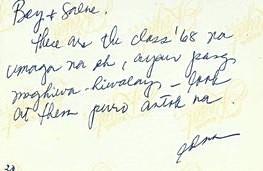 Bey & Salne.
These are the class '68 na
umaga na eh, ayaw pang
maghiwa-hiwalay - look
at them puro antok na.